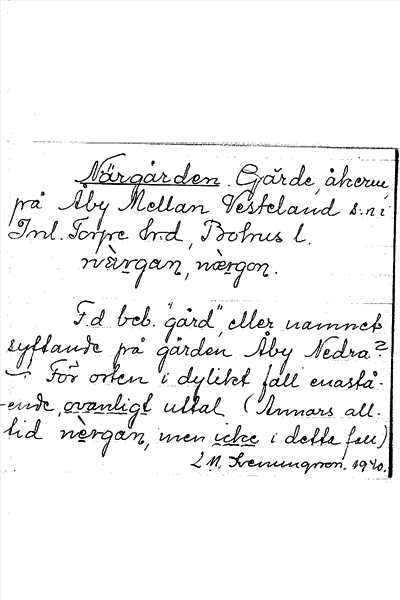 Närgården. Gärde, åkerm,
på Åby Mellan Vesteland s:n i
Inl. Torpe hrd, Bohus l.
næ̀rgan, nærgon.
F.d beb. "gård", eller namnet
syftande på gården Åby Nedra?
— För orten i dylikt fall enastå-
ende, ovanligt uttal (Annars all-
tid nèrgan, men icke i detta fall)
1940.